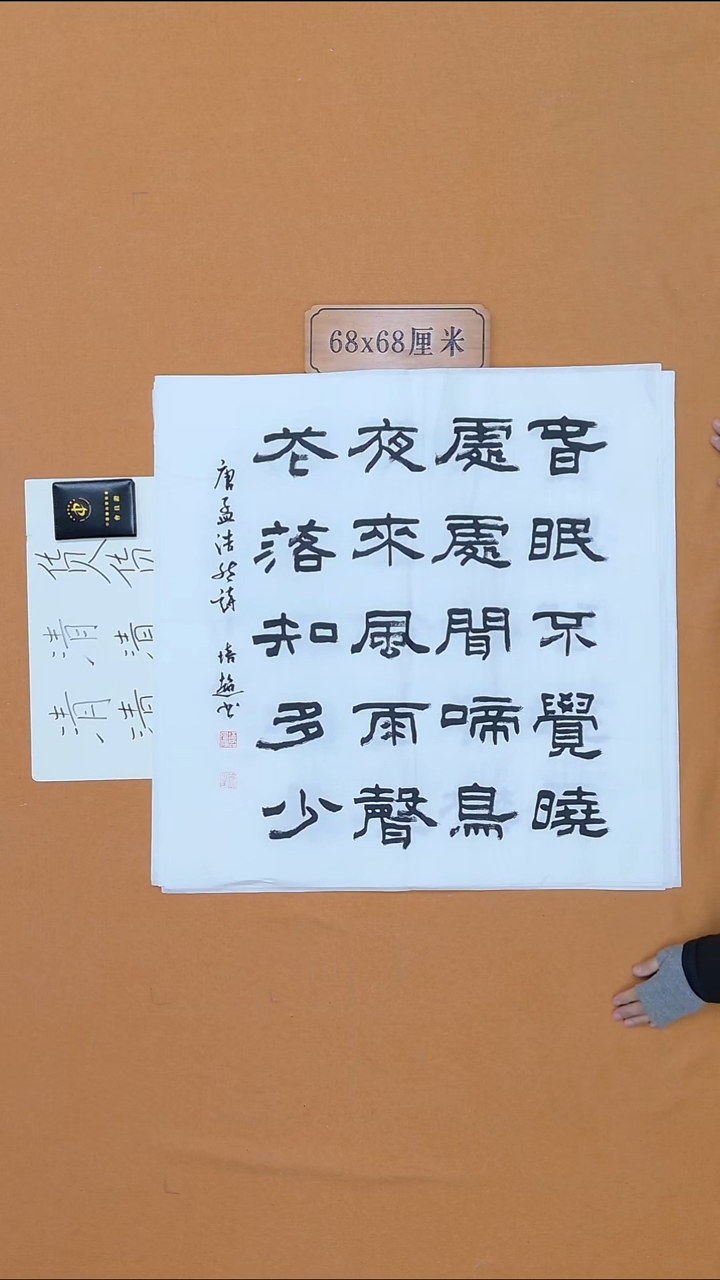 68x68厘米
春眠不覺曉
處處聞啼鳥
夜來風雨聲
花落知多少
唐孟浩然詩 培超书
清清
清清